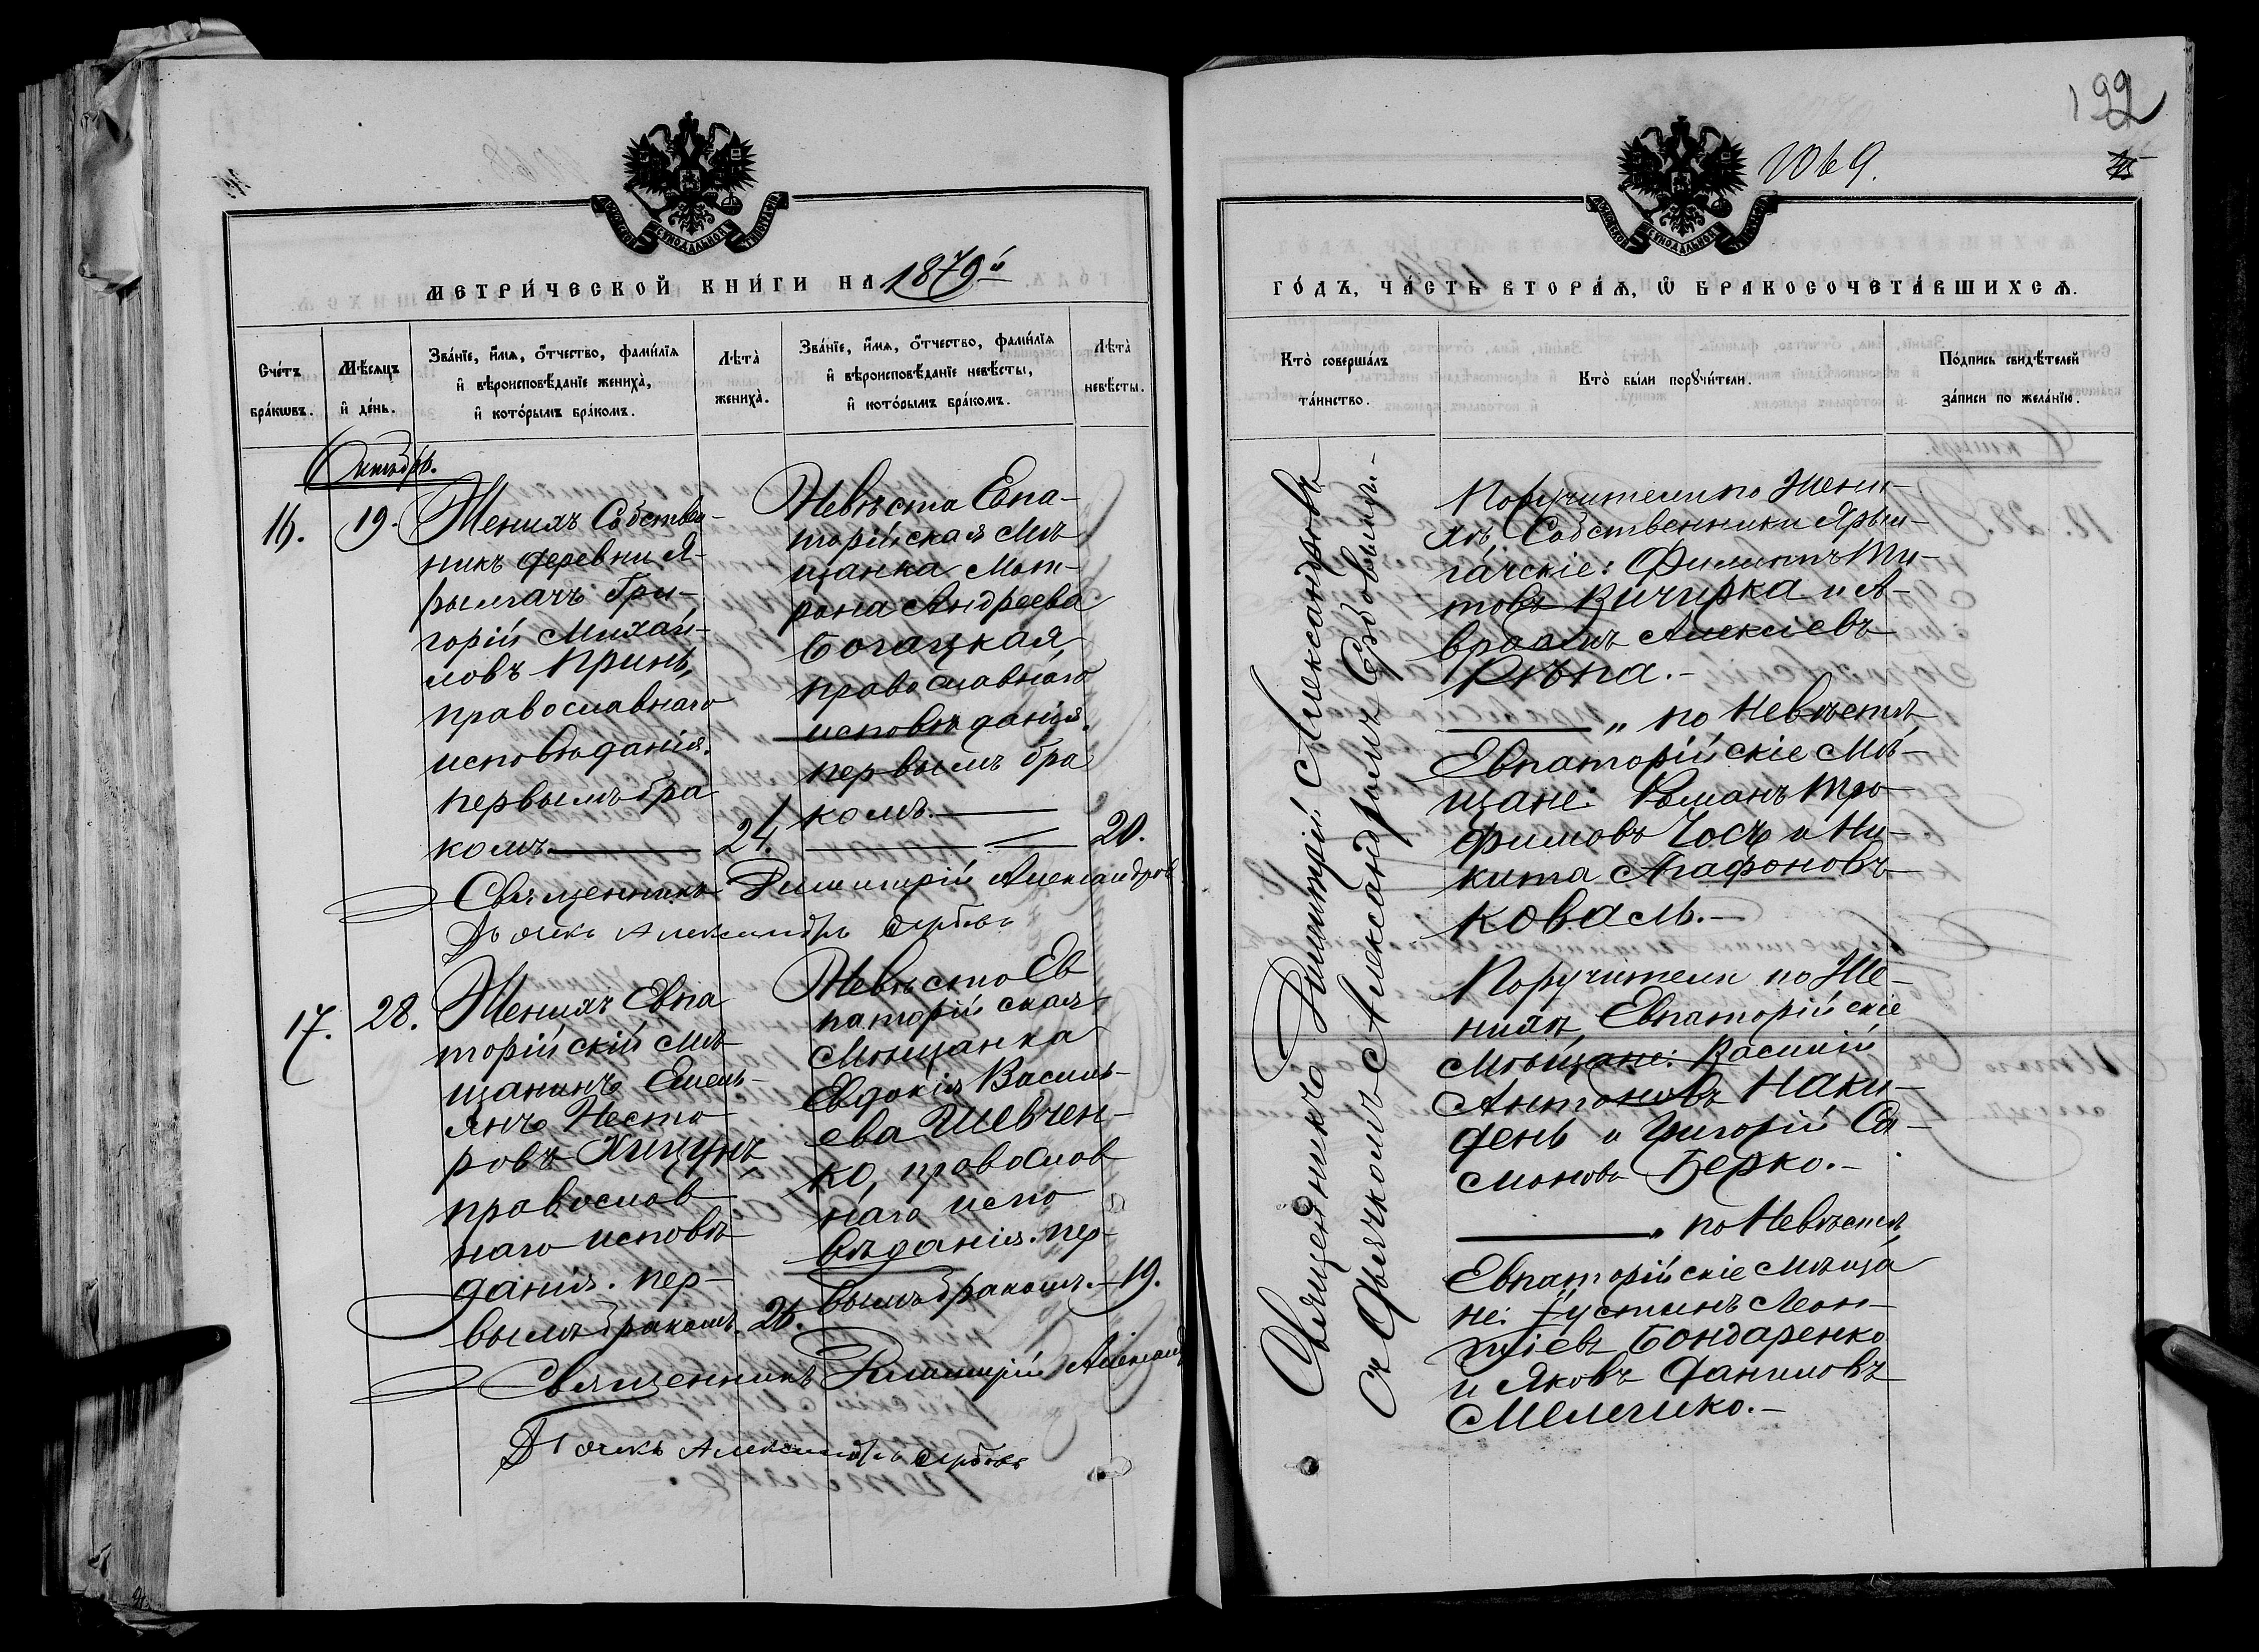 МОСКОВСКОЙ СѴНОДАЛЬНОЙ ТИПОГРАФІИ
МЕТРИ́ЧЕСКОЙ КНИ́ГИ НА 1879й
Сче́тъ бра́кѡвъ.
Мѣ́сяцъ и҆ де́нь.
Зва́нїе, и҆́мѧ, ѻ҆́тчество, фами́лїѧ
и҆ вѣроисповѣ́данїе жениха̀,
и҆ кото́рымъ бра́комъ.
Лѣта̀
жениха̀.
Зва́нїе, и҆́мѧ, ѻ҆́тчество, фами́лїѧ
и҆ вѣроисповѣ́данїе невѣ́сты,
и҆ кото́рымъ бра́комъ.
Лѣта̀
невѣ́сты.
Октябрь.
16.
19.
Женихъ Собствен-
никъ деревни Я-
рылгачъ Гри-
горій Михай-
ловъ Принь,
православнаго
исповѣданія.
первымъ бра
комъ
24.
Невѣста Евпа-
торійская Мѣ
щанка Мат-
рона Андреева
Богацкая,
православнаго
исповѣданія.
первымъ бра
комъ.
20.
Священникъ Димитрій Александров
Дьячекъ Александръ
17.
28.
Женихъ Евпа
торійскій Мѣ
щанинъ Емель-
янъ Несто-
ровъ Хицунъ
православ
наго исповѣ
данія. пер-
вымъ бракомъ.
26.
Невѣста Ев
паторійская
Мѣщанка
Евдокія Василь-
ева Шевчен-
ко, православ
наго испо
вѣданія. пер-
вымъ бракомъ.
19.
Священникъ Димитрій Александ
Дьячекъ Александръ
192
1069.
МОСКОВСКОЙ СѴНОДАЛЬНОЙ ТИПОГРАФІИ
ГО́ДЪ, ЧА́СТЬ ВТОРА́Ѧ, Ѡ҆ БРАКОСОЧЕТА́ВШИХСѦ.
Кто̀ соверша́лъ
та́инство.
Кто̀ бы́ли порꙋчи́тели.
По́дпись свидѣ́телей
за́писи по жела́нїю.
Священникъ Димитрій Александровъ
съ Дьячкомъ Александромъ
Поручители по Жени-
хѣ, Собственники Ярыл-
гачскіе: Филиппъ Ти-
товъ Кичирка и А-
враамъ Алексіевъ
Рѣпа.-
" по Невѣстѣ,
Евпаторійскіе Мѣ-
щане: Романъ Тро-
фимовъ Чосъ и Ни-
кита Агафоновъ
Коваль.-
Поручители по Же-
нихѣ, Евпаторійскіе
Мѣщане: Василій
Антоновъ Наки-
день и Григорій Си-
моновъ Берко.-
" по Невѣстѣ
Евпаторійскіе Мѣща
не: Іустинъ Леон-
тіевъ Бондаренко
и Яковъ Даниловъ
Мелешко.-